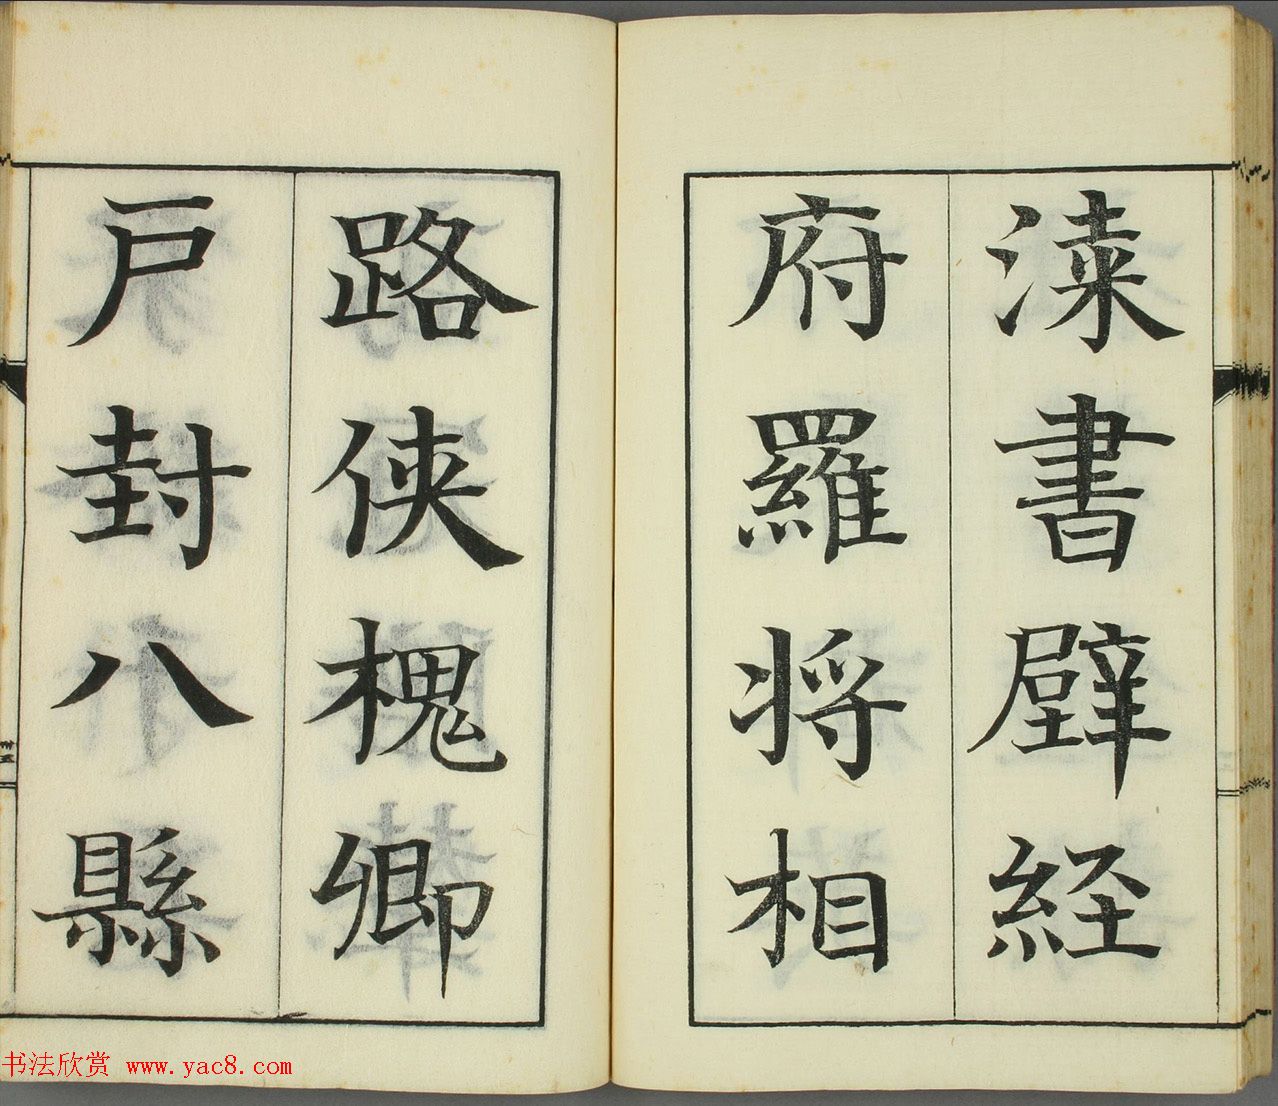 漆書壁経
府羅将相
路侠槐卿
戸封八縣
书法欣赏 www.yac8.com